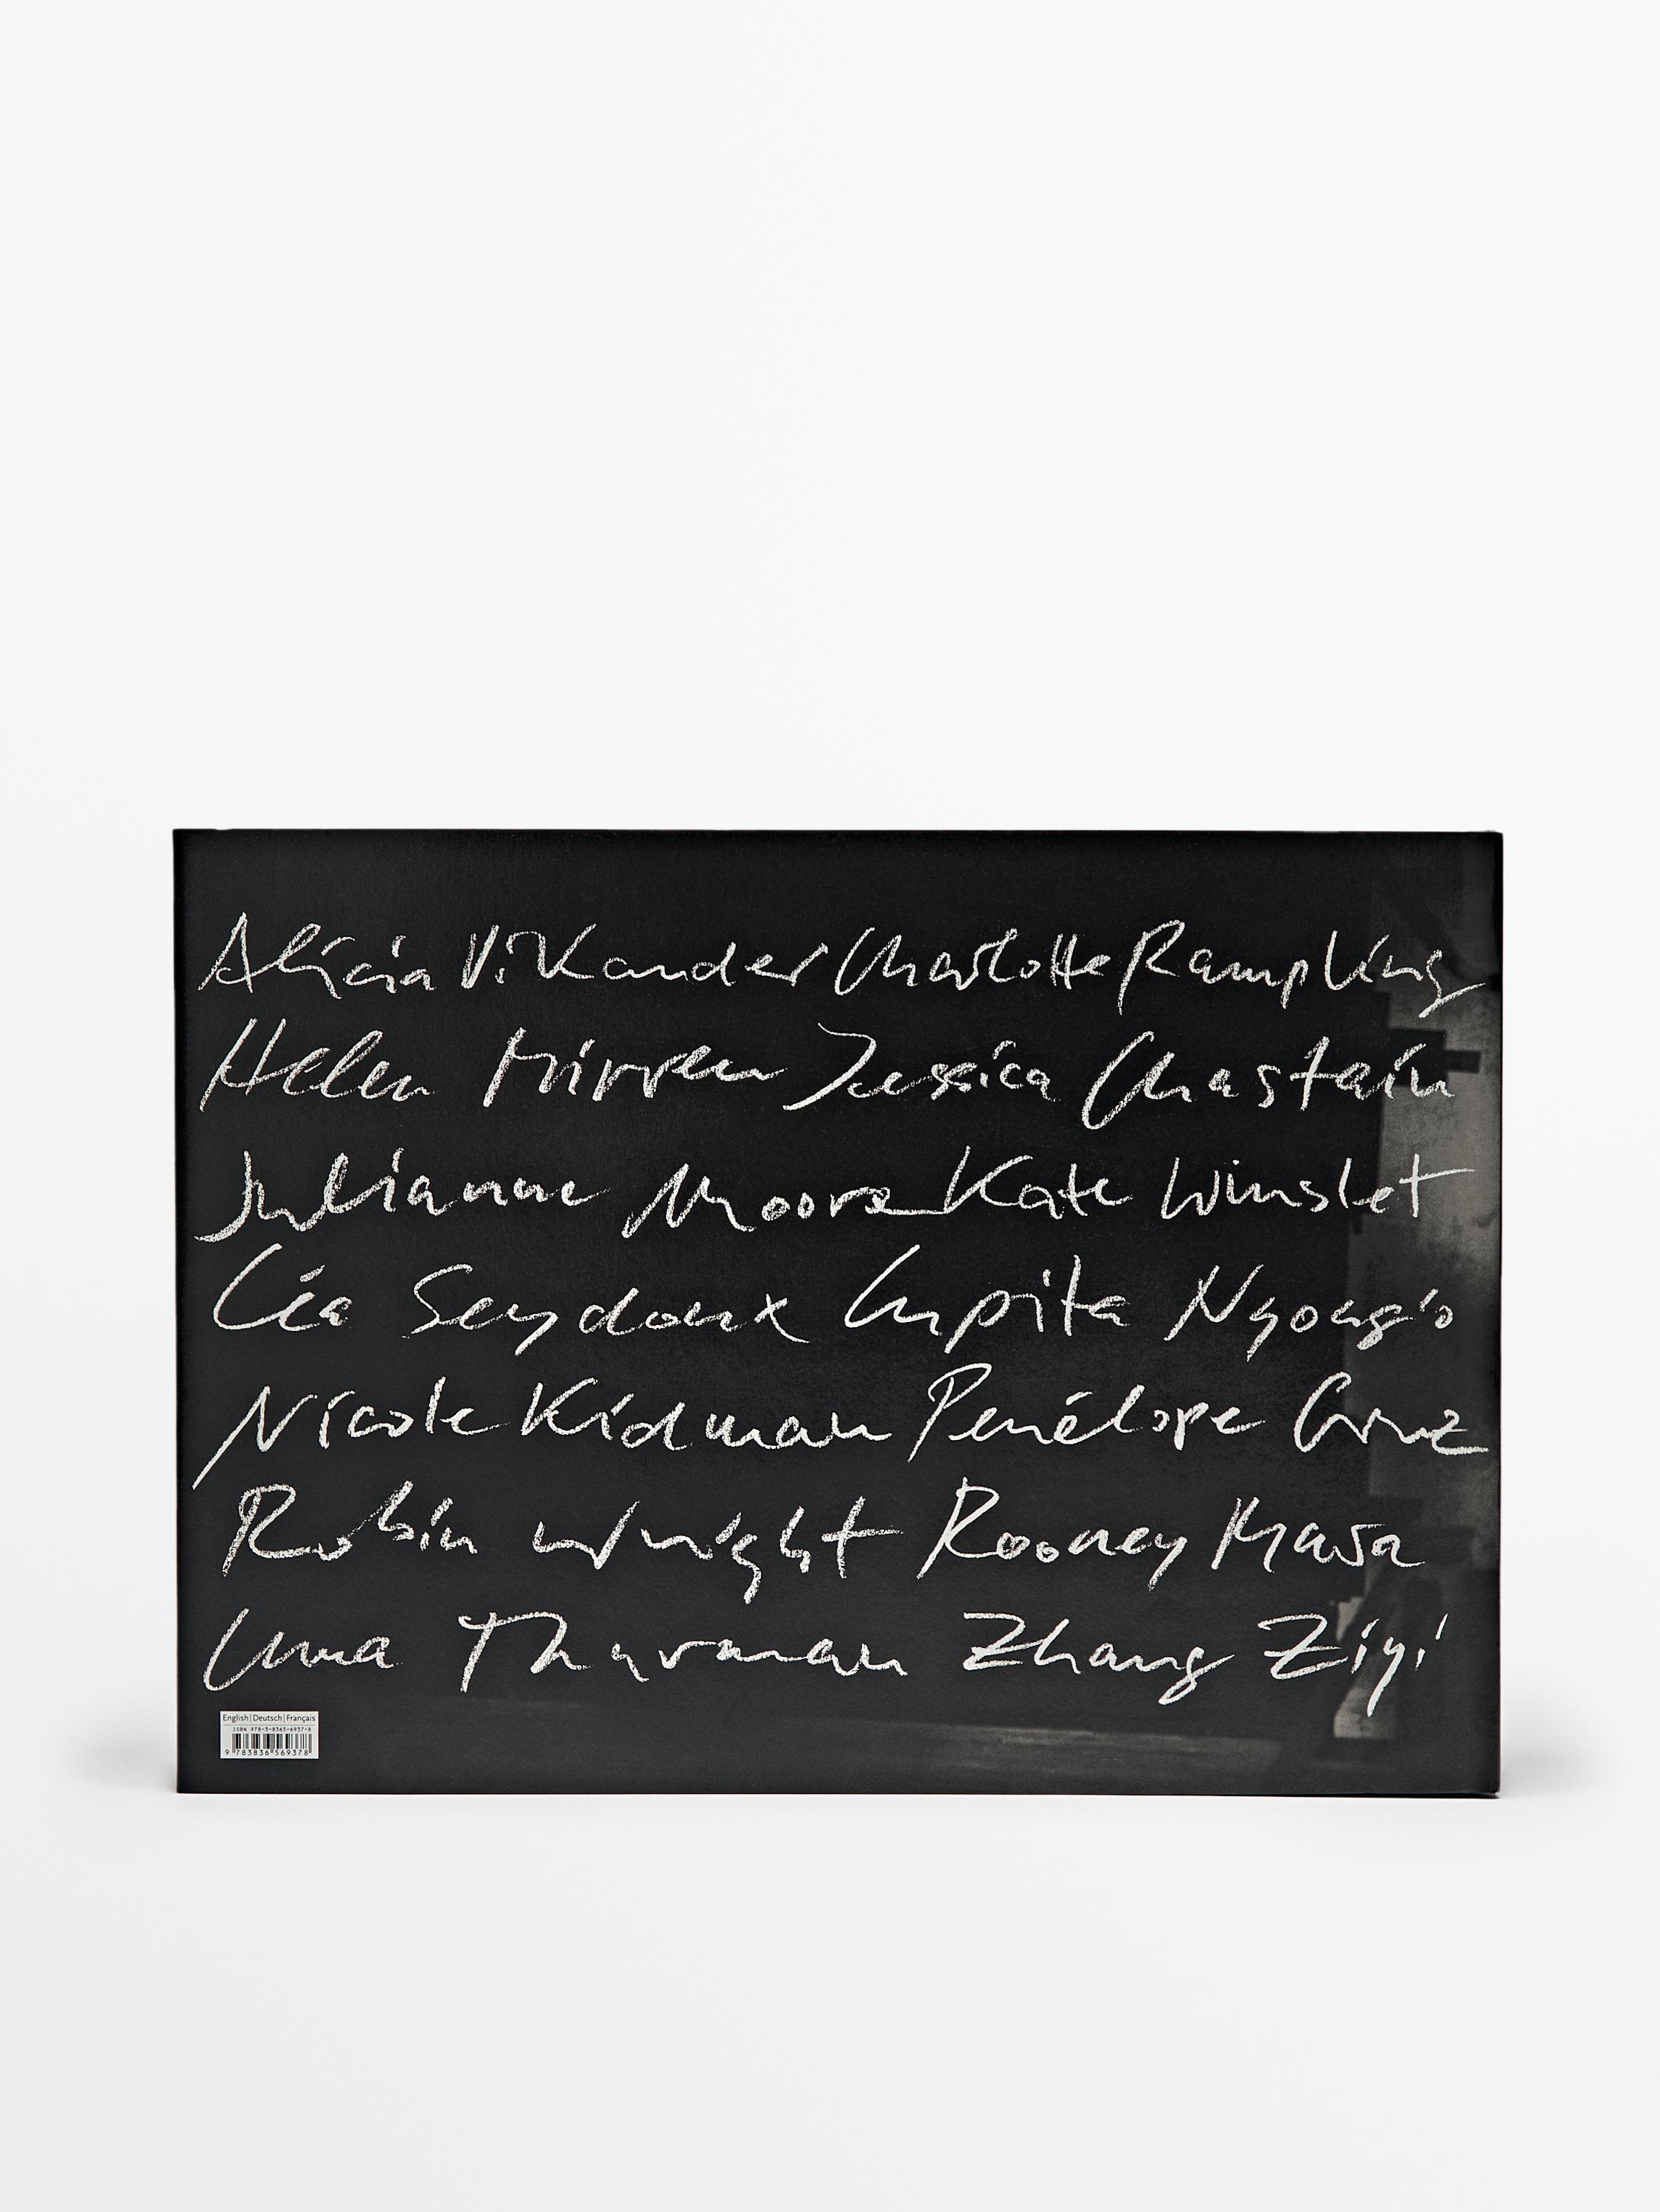 Alicia Vikander Charlotte Rampling
Helen Mirren Jessica Chastain
Julianne Moore Kate Winslet
Léa Seydoux Lupita Nyong'o
Nicole Kidman Penélope Cruz
Robin Wright Rooney Mara
Uma Thurman Zhang Ziyi
English|Deutsch|Français
ISBN 978-3-8365-6937-8
9 783836 569378